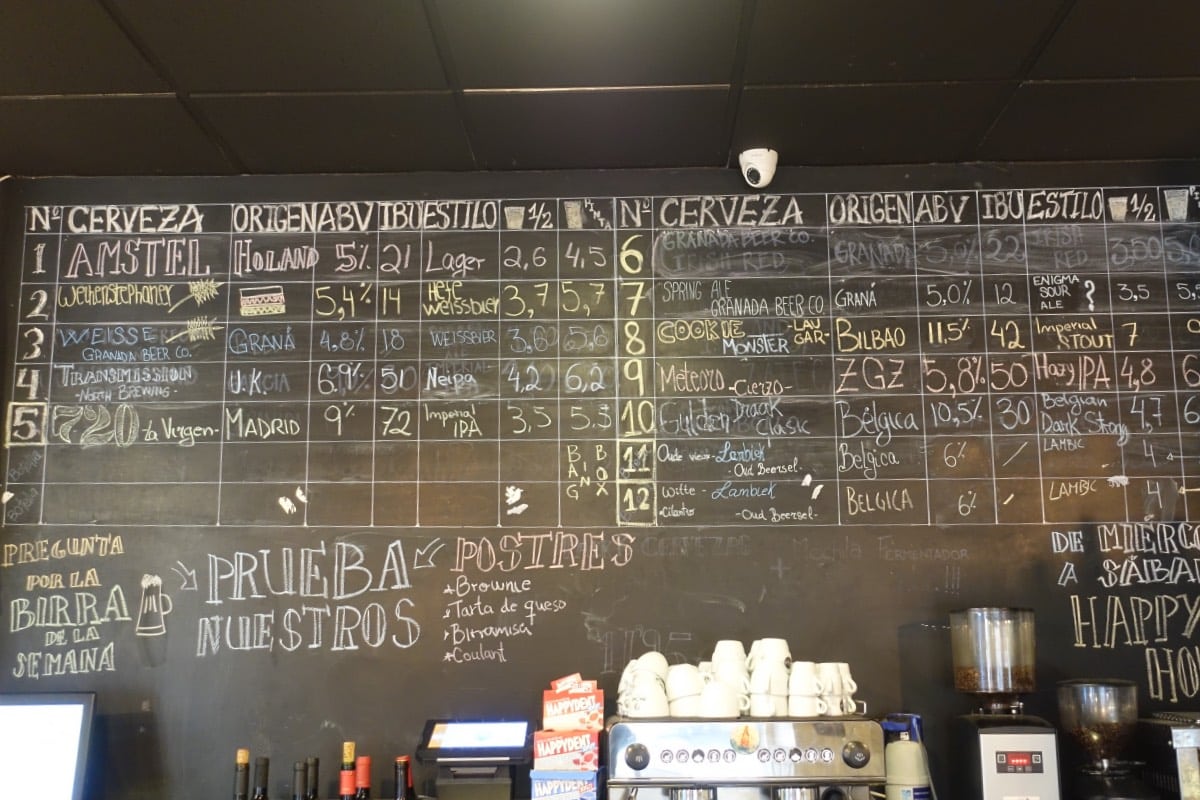 Nº CERVEZA ORIGEN ABV IBU ESTILO 1/2 PINTA
1 AMSTEL HOLAND 5% 21 Lager 2,6 4,5
2 Weihenstephaner 5,4% 14 HEFE WEISSBIER 3,7 5,7
3 WEISSE GRANADA BEER CO. GRANÁ 4,8% 18 WEISSBIER 3,60 5,60
4 TRANSMISSION -NORTH BREWING- U.K. 6.9% 50 Neipa 4,2 6,2
5 720 -La Virgen- MADRID 9% 72 Imperial IPA 3,5 5.5
BAG IN BOX
Nº CERVEZA ORIGEN ABV IBU ESTILO 1/2
6 GRANADA BEER CO. IRISH RED GRANADA 5,0% 22 IRISH RED 3,50
7 SPRING ALE GRANADA BEER CO. GRANÁ 5,0% 12 ENIGMA SOUR ALE ? 3,5
8 COOKIE MONSTER -LAUGAR- BILBAO 11,5% 42 Imperial STOUT 7 9
9 Meteoro -Cierzo- ZGZ 5,8% 50 Hazy IPA 4,8
10 Gulden Draak Clasic Bélgica 10,5% 30 Belgian Dark Strong 4,7
11 Oude vieux-Lambiek -Oud Beersel- Belgica 6% / LAMBIC 4
12 Witte -Lambiek •Cilantro -Oud Beersel- BELGICA 6% / LAMBIC 4
PREGUNTA
POR LA
BIRRA
DE LA
SEMANA
PRUEBA
NUESTROS
POSTRES
Brownie
Tarta de queso
Birramisú
Coulant
Mochila FERMENTADOR
DE MIÉRCO
A SÁBA
HAPPY
HO
HAPPYDENT
HAPPYDENT
HAPPYDENT